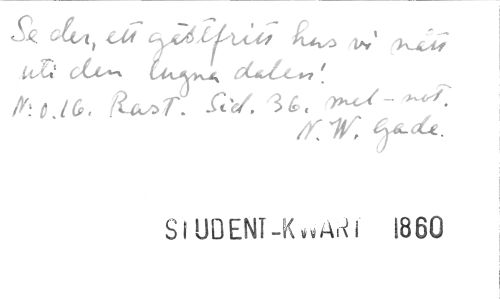 Se der, ett gästfritt hus vi nått
uti den lugna dalen!
N:o.16. Rast. Sid. 36. mel-not.
N. W. Gade.
STUDENT-KWART 1860